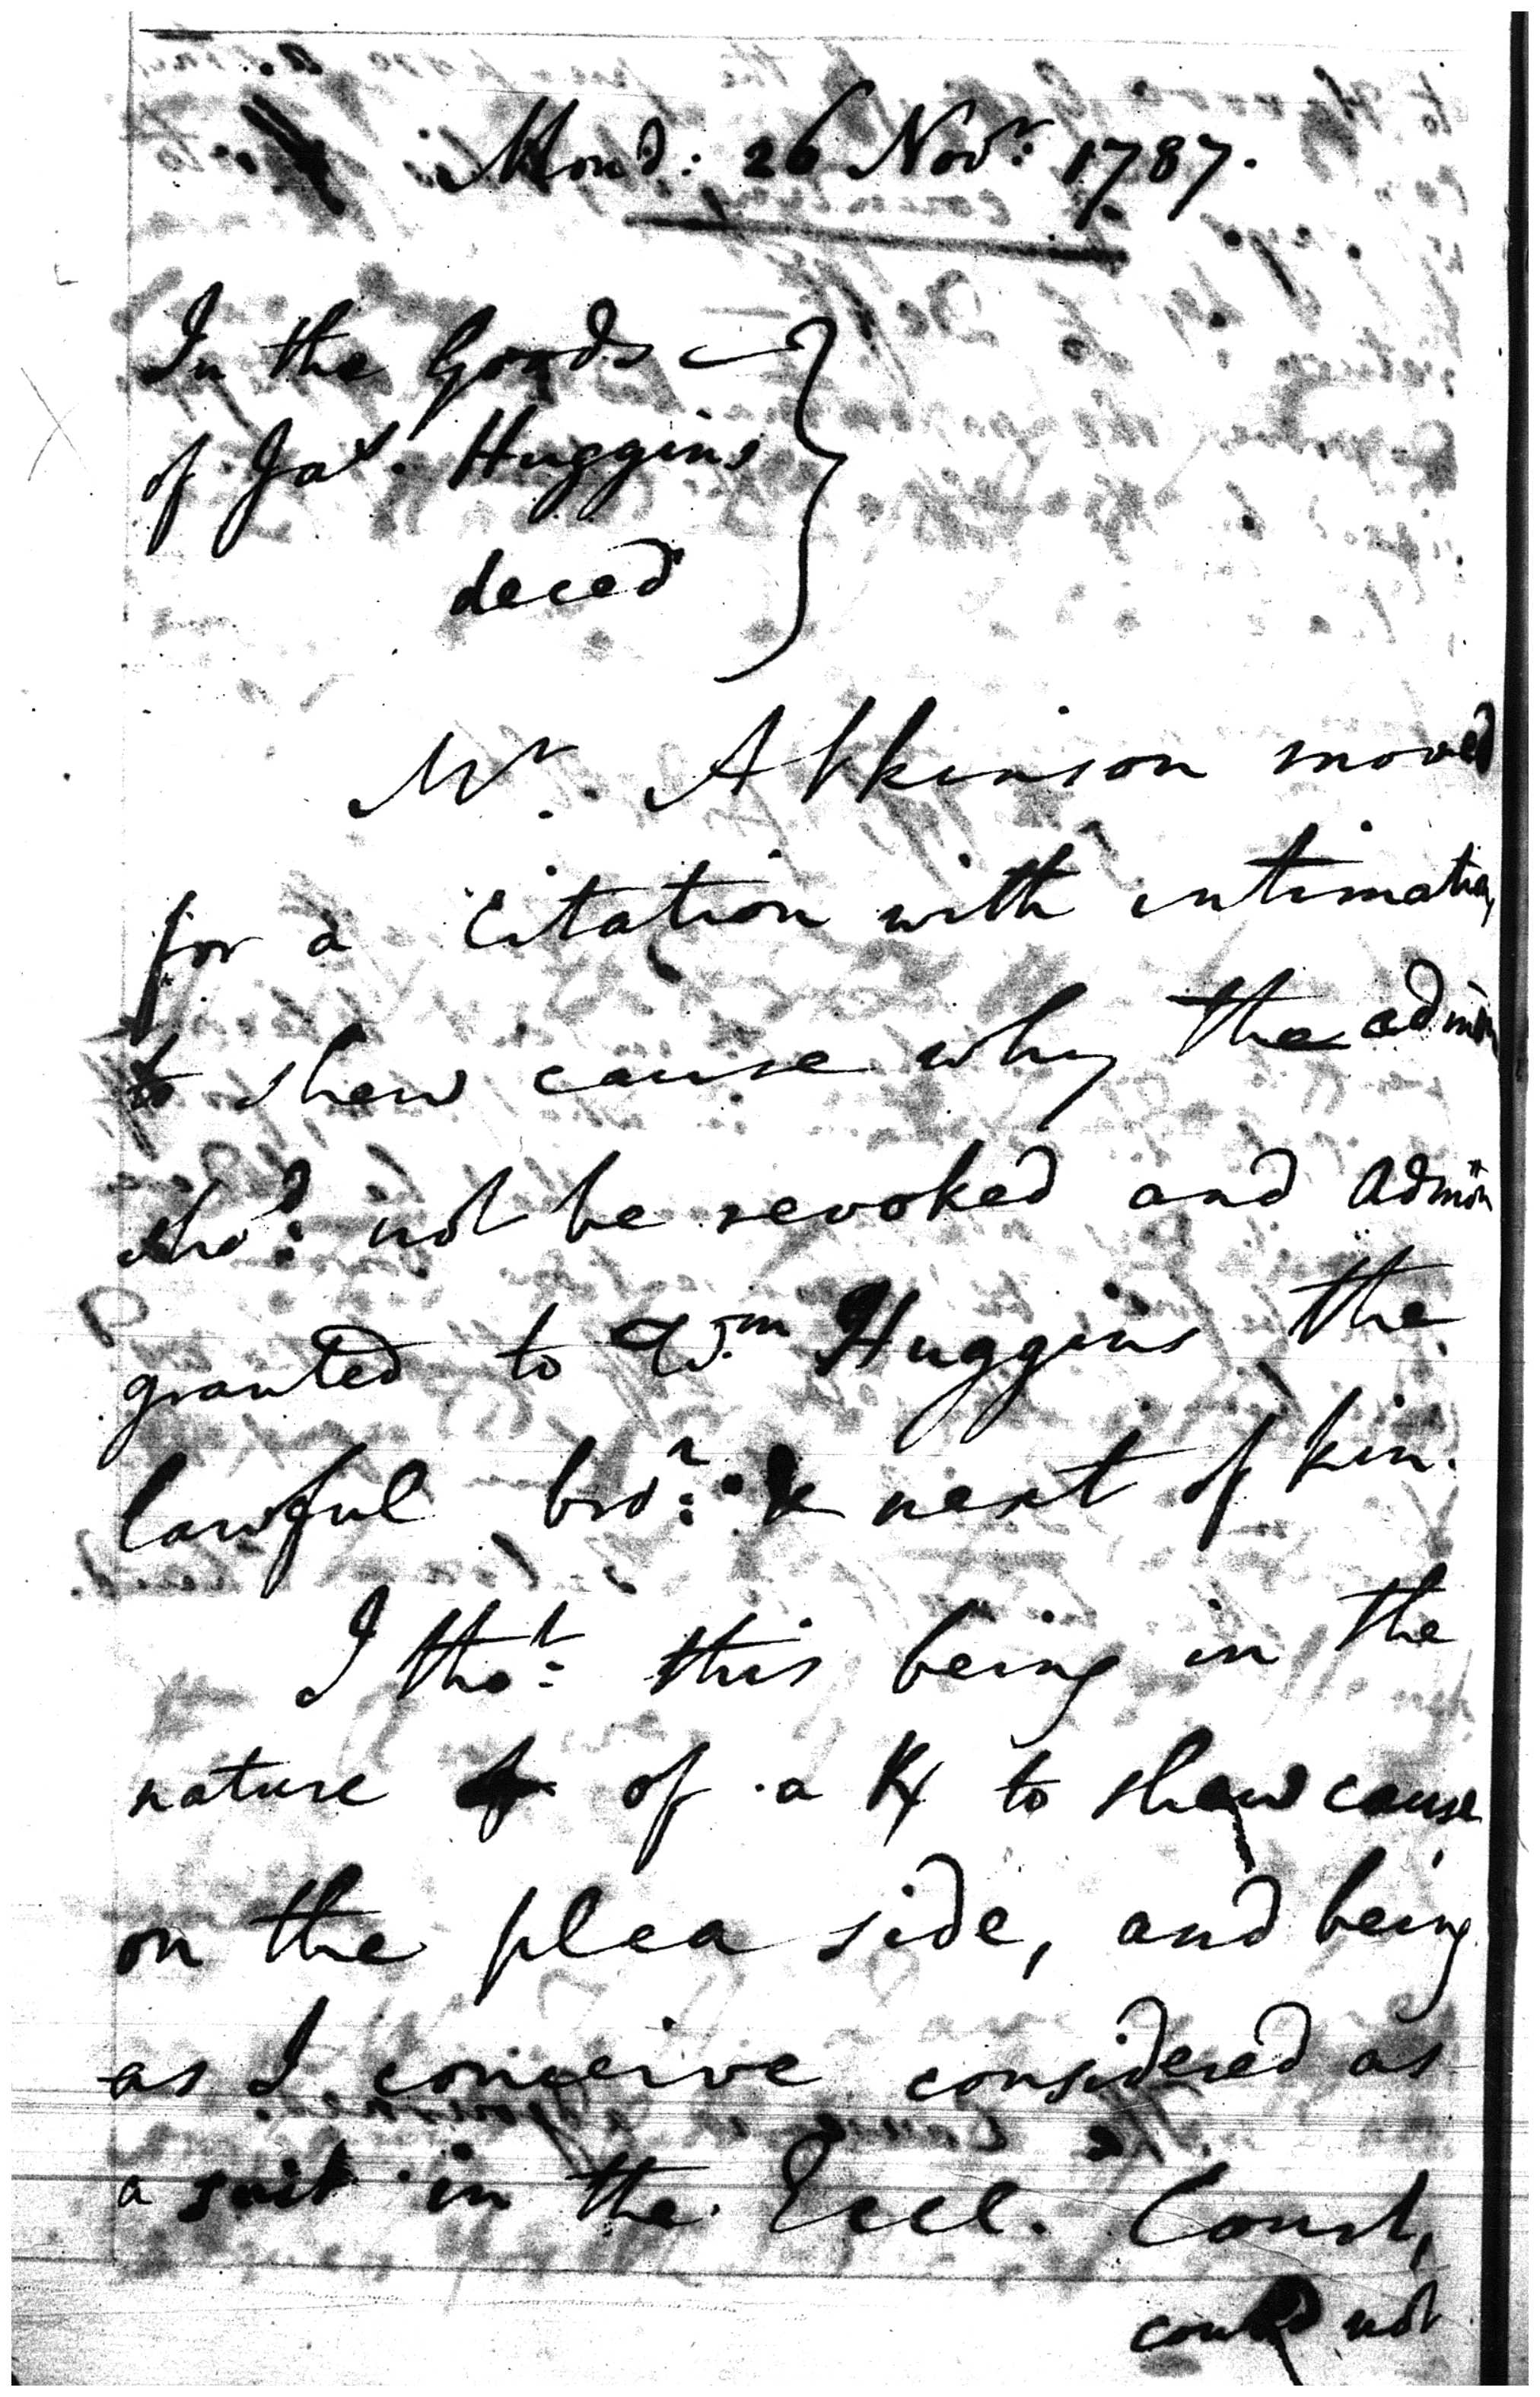 Mond: 26 Novr: 1787.
In the Goods
of Jas. Huggins
deced
Mr. Atkinson moved
for a Citation with intimation,
to shew cause why the admon
shod: not be revoked and Admon
granted to Wm. Huggins the
lawful bror: & next of kin.
I thot: this being in the
nature of a to shew cause
on the plea side, and being
as I conceive considered as
a suit in the Eccl. Court,
could not